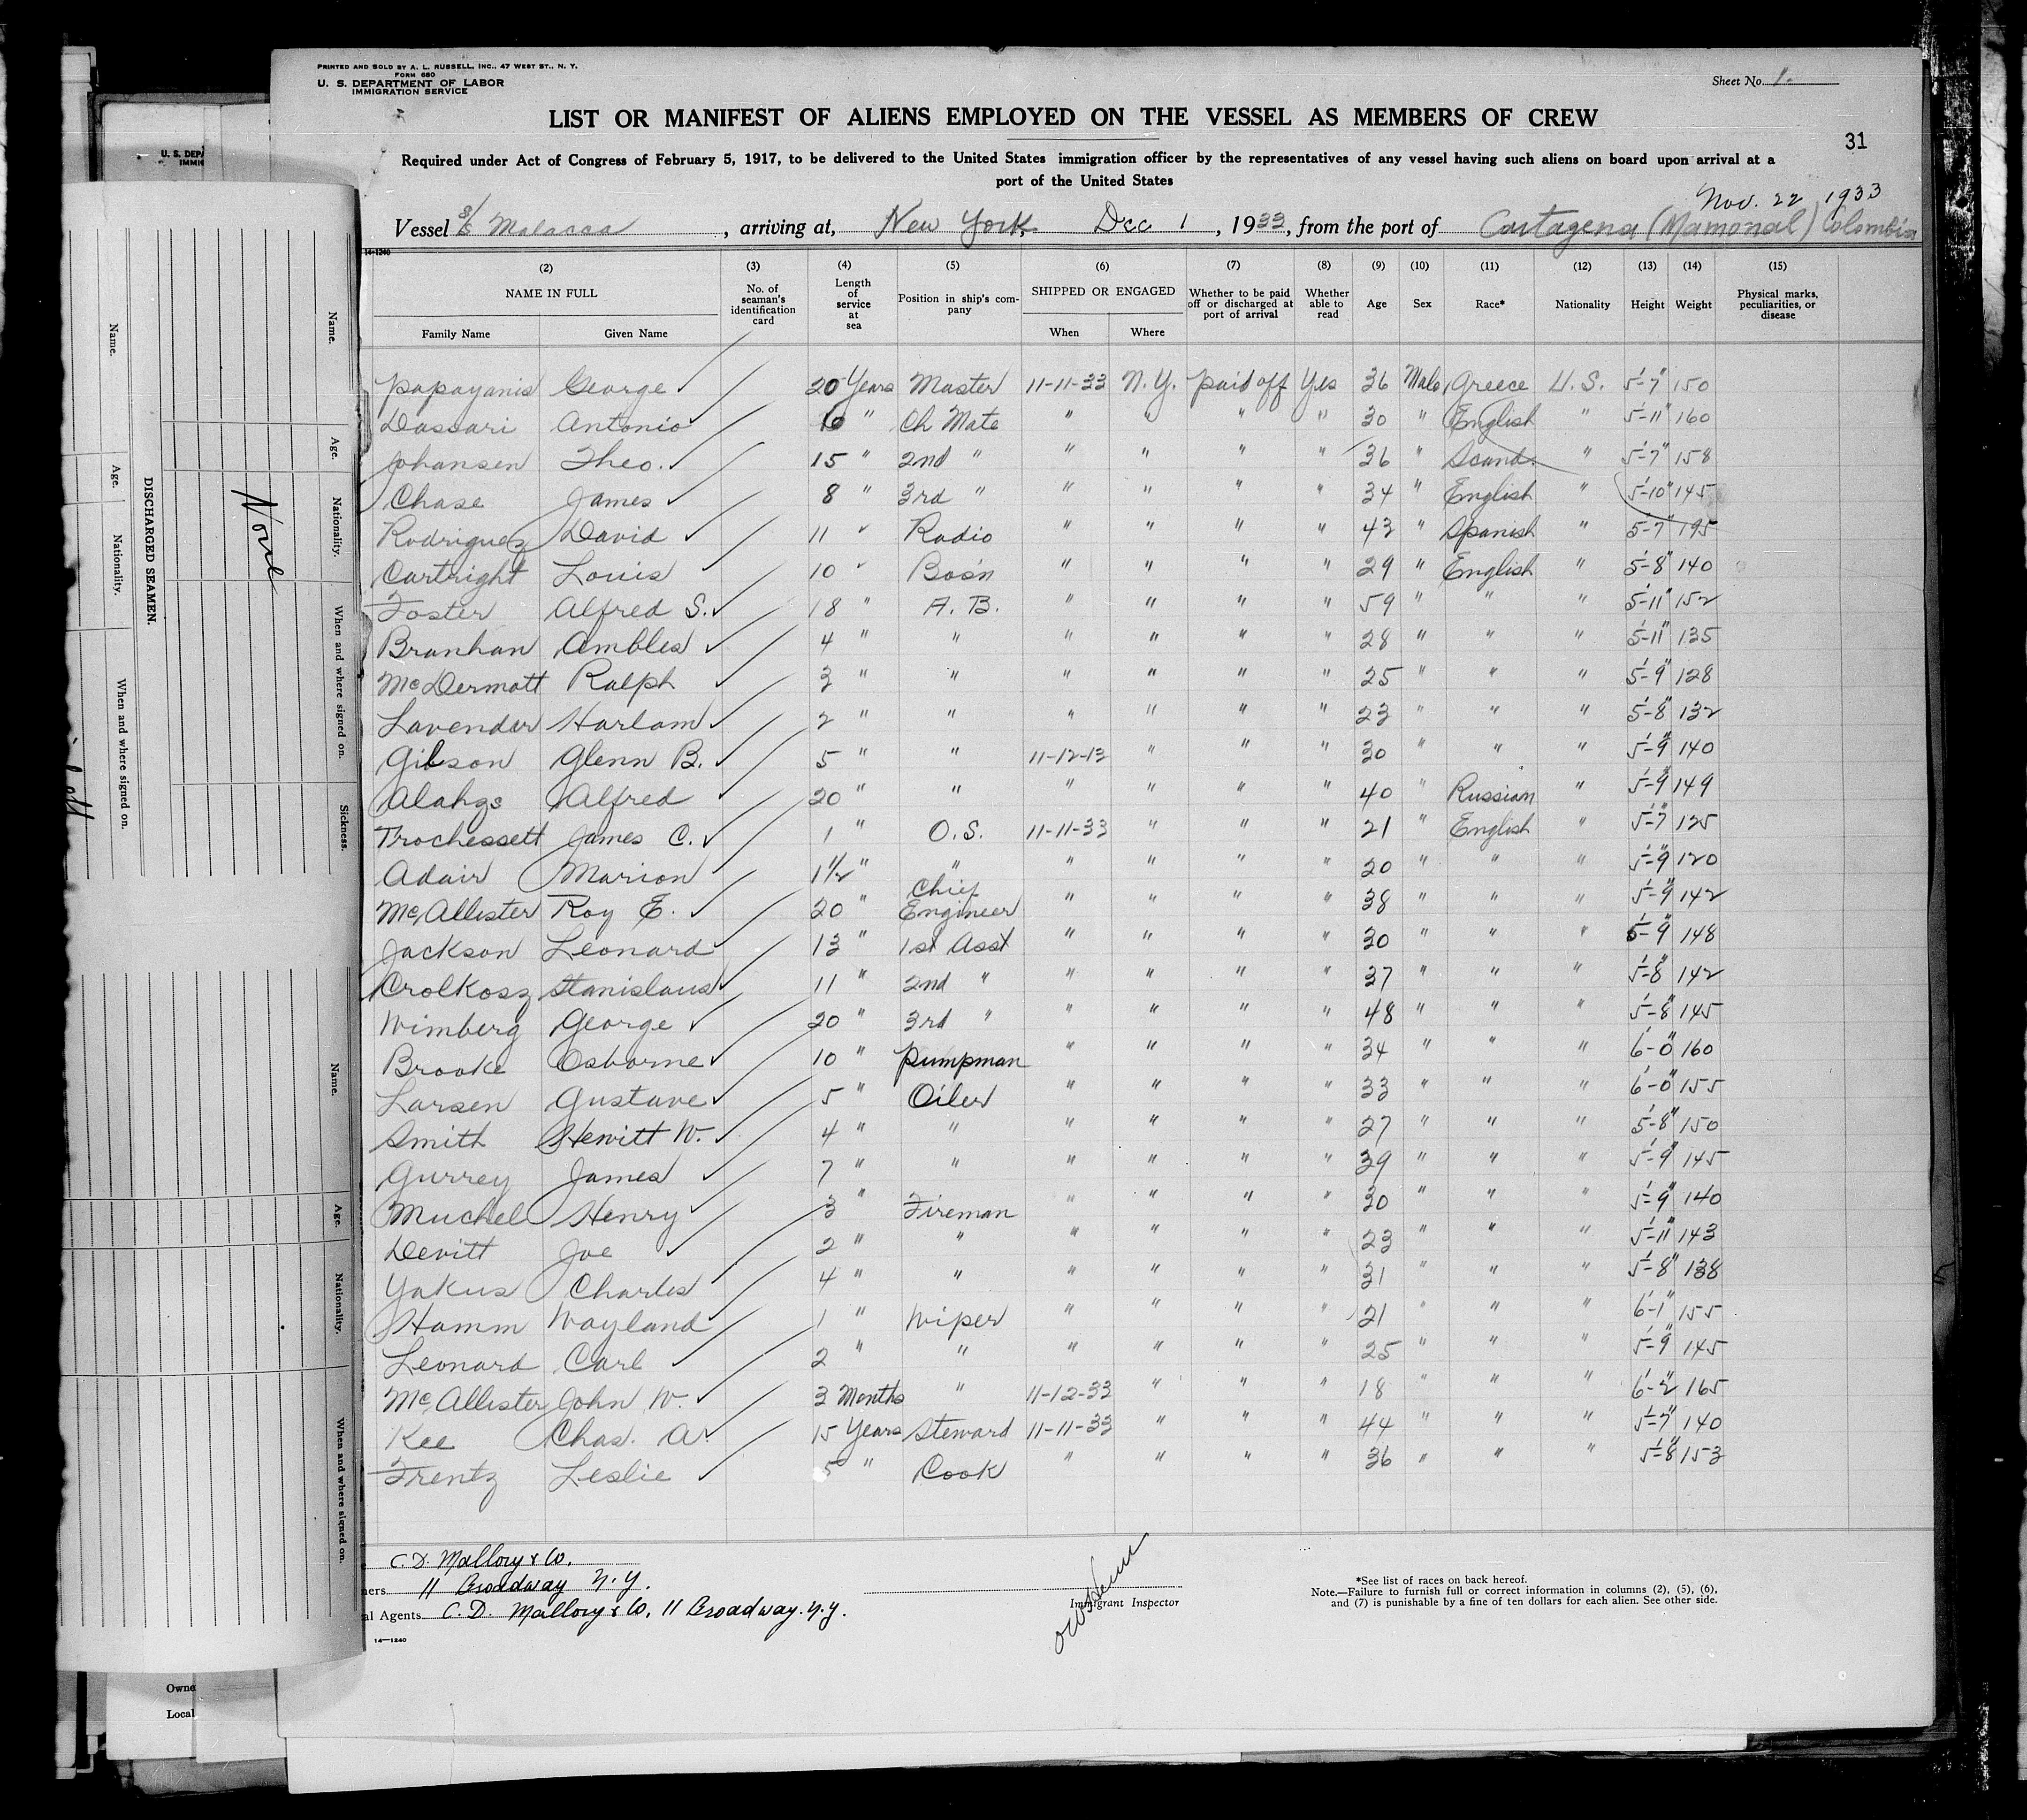 PRINTED AND SOLD BY A. L. RUSSELL, INC., 47 WEST ST., N. Y.
FORM 680
U. S. DEPARTMENT OF LABOR
IMMIGRATION SERVICE
Sheet No. 1.
LIST OR MANIFEST OF ALIENS EMPLOYED ON THE VESSEL AS MEMBERS OF CREW
31
Required under Act of Congress of February 5, 1917, to be delivered to the United States immigration officer by the representatives of any vessel having such aliens on board upon arrival at a
port of the United States
Nov. 22 1933
Vessel Malacca, arriving at, New York, Dec 1, 1933, from the port of Cartagena (Mamonal) Colombia
14-1240
(2) (3) (4) (5) (6) (7) (8) (9) (10) (11) (12) (13) (14) (15)
NAME IN FULL No. of seaman's identification card Length of service at sea Position in ship's company SHIPPED OR ENGAGED Whether to be paid off or discharged at port of arrival Whether able to read Age Sex Race* Nationality Height Weight Physical marks, peculiarities, or disease
Family Name Given Name When Where
Papayanis George 20 Years Master 11-11-33 N.Y. paid off Yes 36 Male Greece U.S. 5'-7" 150
Dassari Antonio " Ch Mate " " " " 30 " English " 5'-11" 160
Johansen Theo. 15 " 2nd " " " " " 36 " Scand. " 5'-7" 158
Chase James 8 " 3rd " " " " " 34 " English " 5'-10" 145
Rodriguez David 11 " Radio " " " " 43 " Spanish " 5'-7" 195
Cartright Louis 10 " Bos'n " " " " 29 " English " 5'-8" 140
Foster Alfred S. 18 " A. B. " " " " 59 " " " 5'-11" 152
Branhan Ambles 4 " " " " " " 28 " " " 5'-11" 135
McDermott Ralph 3 " " " " " " 25 " " " 5'-9" 128
Lavender Harlam 2 " " " " " " 23 " " " 5'-8" 132
Gibson Glenn B. 5 " " 11-12-13 " " " 30 " " " 5'-9" 140
Alahzs Alfred 20 " " " " " " 40 " Russian " 5'-9" 149
Trochessett James C. 1 " O.S. 11-11-33 " " " 21 " English " 5'-7" 125
Adair Marion 1 1/2 " " " " " " 20 " " " 5'-9" 120
McAllister Roy E. 20 " Chief Engineer " " " " 38 " " " 5'-9" 142
Jackson Leonard 13 " 1st Asst " " " " 30 " " " 5'-9" 148
Crolkosz Stanislaus 11 " 2nd " " " " " 37 " " " 5'-8" 142
Wimberg George 20 " 3rd " " " " " 48 " " " 5'-8" 145
Brooke Osborne 10 " Pumpman " " " " 34 " " " 6'-0" 160
Larsen Gustave 5 " Oiler " " " " 33 " " " 6'-0" 155
Smith Hewitt W. 4 " " " " " " 27 " " " 5'-8" 150
Gurrey James 7 " " " " " " 39 " " " 5'-9" 145
Muchel Henry 3 " Fireman " " " " 30 " " " 5'-9" 140
Devitt Joe 2 " " " " " " 23 " " " 5'-11" 143
Yakus Charles 4 " " " " " " 31 " " " 5'-8" 138
Hamm Wayland 1 " Wiper " " " " 21 " " " 6'-1" 155
Leonard Carl 2 " " " " " " 25 " " " 5'-9" 145
McAllister John W. 3 Months " 11-12-33 " " " 18 " " " 6'-2" 165
Kee Chas. A. 15 Years Steward 11-11-33 " " " 44 " " " 5'-7" 140
Frentz Leslie 5 " Cook " " " " 36 " " " 5'-8" 153
C. D. Mallory & Co.
ners 11 Broadway N.Y.
al Agents C. D. Mallory & Co. 11 Broadway. N.Y.
14—1240
Immigrant Inspector
*See list of races on back hereof.
Note.—Failure to furnish full or correct information in columns (2), (5), (6),
and (7) is punishable by a fine of ten dollars for each alien. See other side.
U. S. DEPA
IMMIG
DISCHARGED SEAMEN.
Name. Age. Nationality. When and where signed on.
Name. Age. Nationality. When and where signed on. Sickness.
None
Name. Age. Nationality. When and where signed on.
Owne
Local